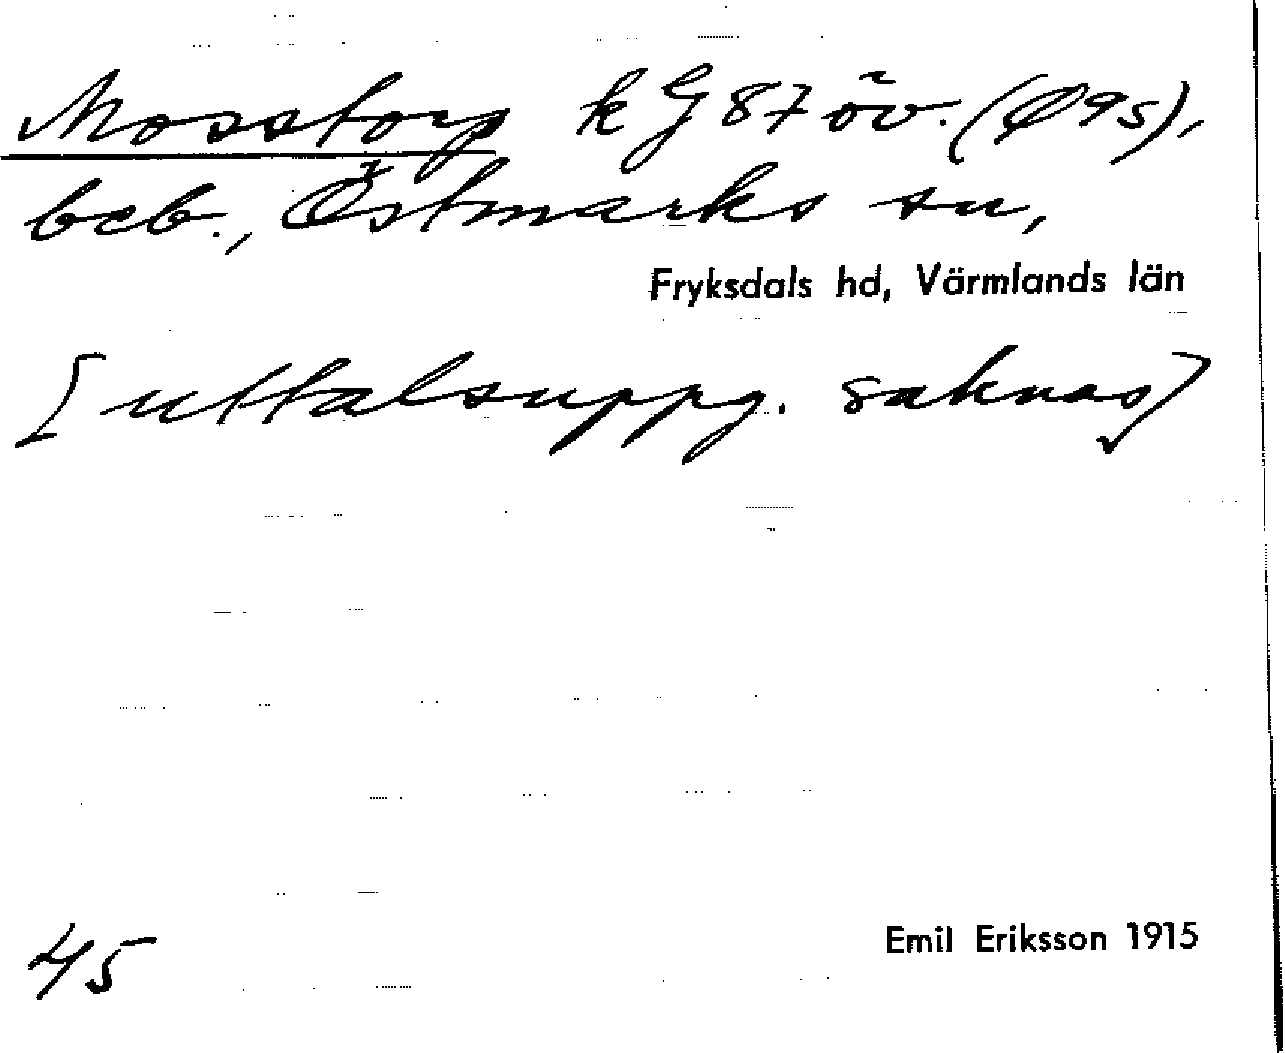 Mosstorp k G 87 öv. (Ø 9s),
beb., Östmarks sn,
Fryksdals hd, Värmlands län
[uttalsuppg. saknas]
45
Emil Eriksson 1915